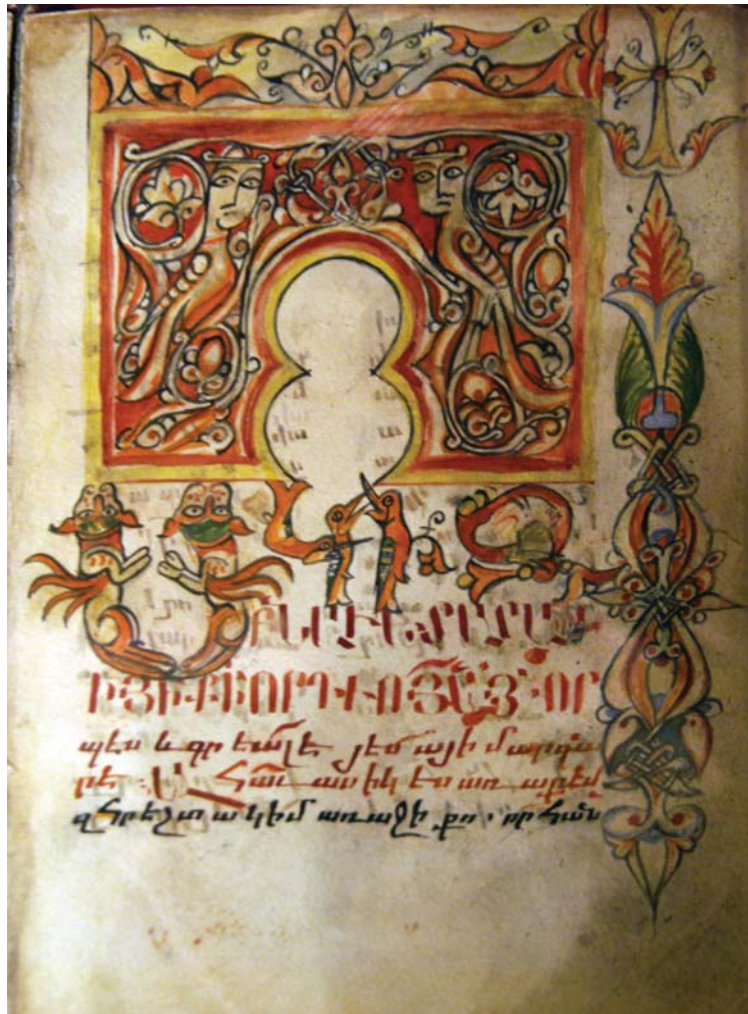 ՍԿԻԶ
ԲՆ ԱՒԵՏԱՐԱՆ
Ի ՅԻ ՔԻ ՈՐԴՒՈՅ ԱՅ ՈՐ
պէս և գրեալ է յեսայի մարգա
րէ . Ահաւասիկ ես առաքեմ
զհրեշտակ իմ առաջի քո . որ հան